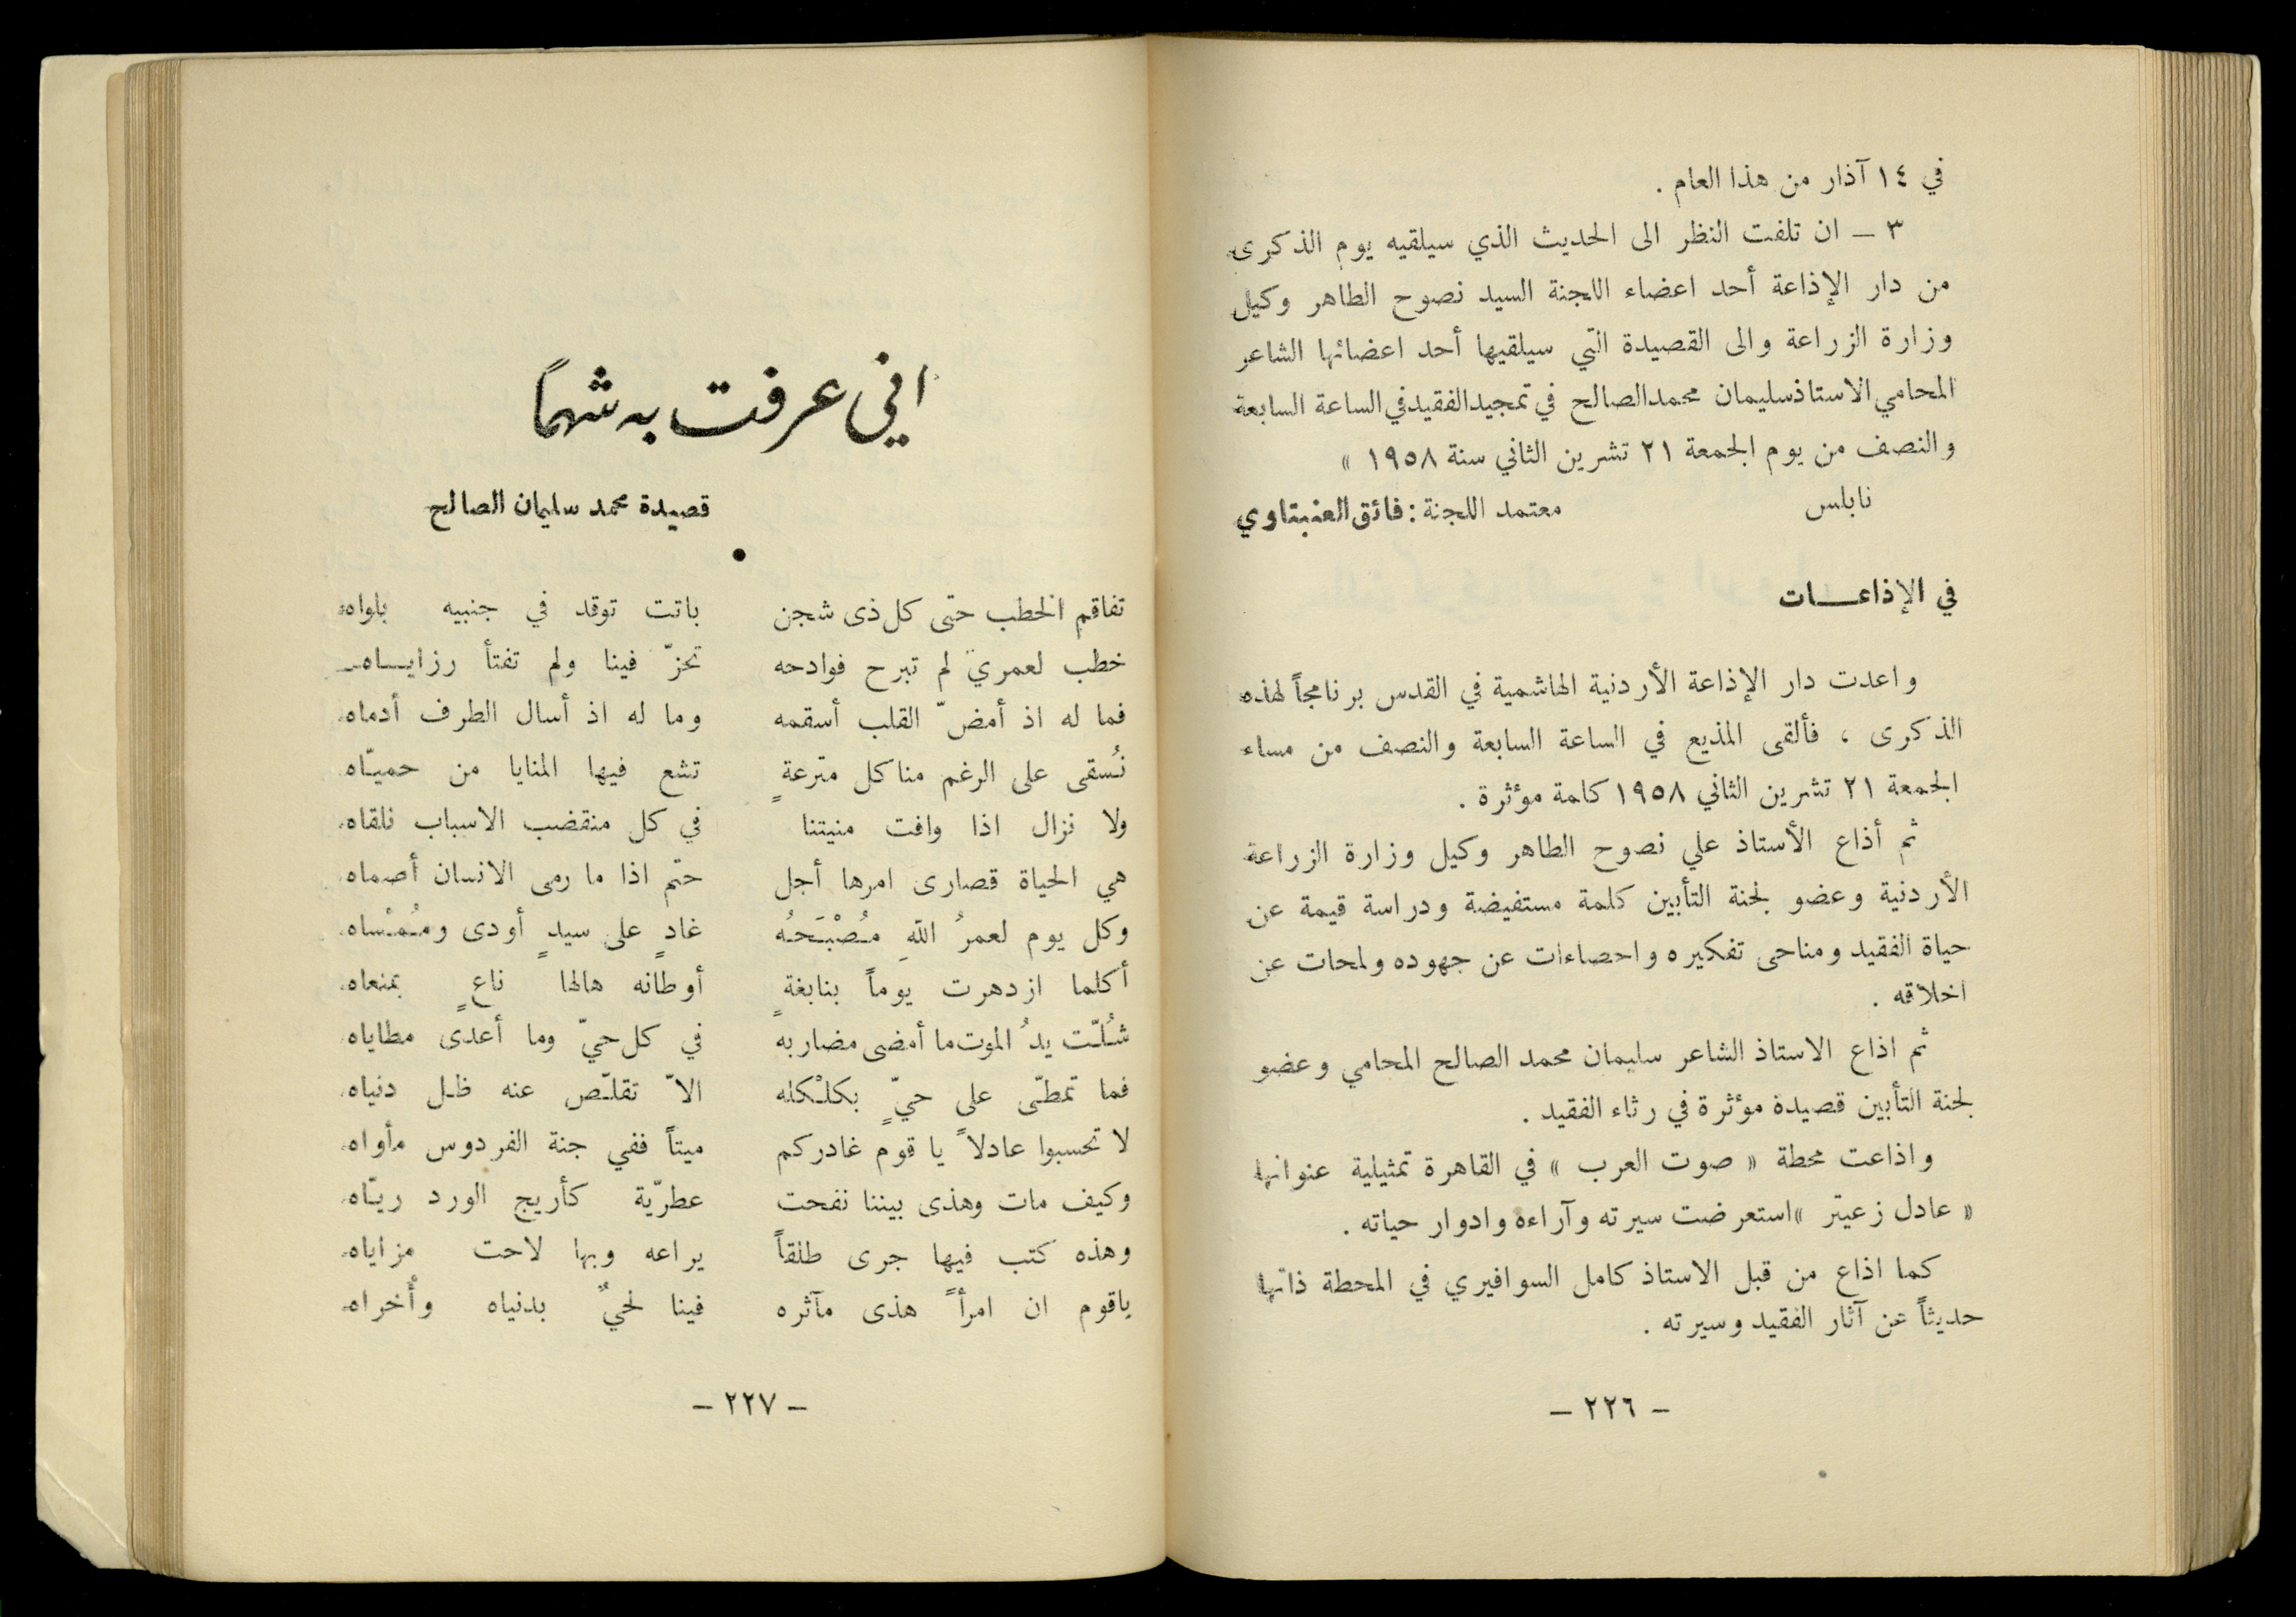 في ١٤ آذار من هذا العام .
٣ – ان تلفت النظر الى الحديث الذي سيلقيه يوم الذكرى
من دار الإذاعة أحد اعضاء اللجنة السيد نصوح الطاهر وكيل
وزارة الزراعة والى القصيدة التي سيلقيها أحد اعضائها الشاعر
المحامي الاستاذ سليمان محمد الصالح في تمجيد الفقيد في الساعة السابعة
والنصف من يوم الجمعة ٢١ تشرين الثاني سنة ١٩٥٨ »
نابلس معتمد اللجنة : فائق العنبتاوي
في الإذاعــــات
واعدت دار الإذاعة الأردنية الهاشمية في القدس برنامجاً لهذه
الذكرى ، فألقى المذيع في الساعة السابعة والنصف من مساء
الجمعة ٢١ تشرين الثاني ١٩٥٨ كلمة مؤثرة .
ثم أذاع الأستاذ علي نصوح الطاهر وكيل وزارة الزراعة
الأردنية وعضو لجنة التأبين كلمة مستفيضة ودراسة قيمة عن
حياة الفقيد ومناحى تفكيره واحصاءات عن جهوده ولمحات عن
اخلاقه .
ثم اذاع الاستاذ الشاعر سليمان محمد الصالح المحامي وعضو
لجنة التأبين قصيدة مؤثرة في رثاء الفقيد .
واذاعت محطة « صوت العرب » في القاهرة تمثيلية عنوانها
« عادل زعيتر » استعرضت سيرته وآراءه وادوار حياته .
كما اذاع من قبل الاستاذ كامل السوافيري في المحطة ذاتها
حديثاً عن آثار الفقيد وسيرته .
– ٢٢٦ –
اني عرفت به شهماً
قصيدة محمد سليمان الصالح
•
تفاقم الخطب حتى كل ذى شجن باتت توقد في جنبيه بلواه
خطب لعمري لم تبرح فوادحه تحزّ فينا ولم تفتأ رزايــاه
فما له اذ أمضّ القلب أسقمه وما له اذ أسال الطرف أدماه
نُسقى على الرغم منا كل مترعةٍ تشع فيها المنايا من حميّاه
ولا نزال اذا وافت منيتنا في كل منقضب الاسباب نلقاه
هي الحياة قصارى امرها أجل حتم اذا ما رمى الانسان أصماه
وكل يوم لعمرُ اللهِ مُصْبَحُه غادٍ على سيدٍ أودى ومُمْساه
أكلما ازدهرت يوماً بنابغةٍ أوطانه هالها ناعٍ بمنعاه
شُلّت يدُ الموت ما أمضى مضاربه في كل حيّ وما أعدى مطاياه
فما تمطّى على حيّ بكلْكله الاّ تقلّص عنه ظل دنياه
لا تحسبوا عادلاً يا قوم غادركم ميتاً ففي جنة الفردوس مأواه
وكيف مات وهذى بيننا نفحت عطريّة كأريج الورد ريّاه
وهذه كتب فيها جرى طلقاً يراعه وبها لاحت مزاياه
ياقوم ان امرأً هذى مآثره فينا لحيٌ بدنياه وأُخراه
– ٢٢٧ –